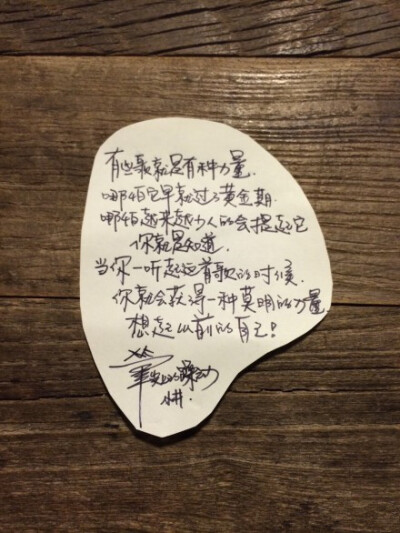 有些歌就是有种力量.
哪怕它早就过了黄金期.
哪怕越来越少人的会提起它
你就是知道.
当你一听起这首歌的时候.
你就会获得一种莫明的力量.
想起以前的自己!
笔尖上的躁动
小井.